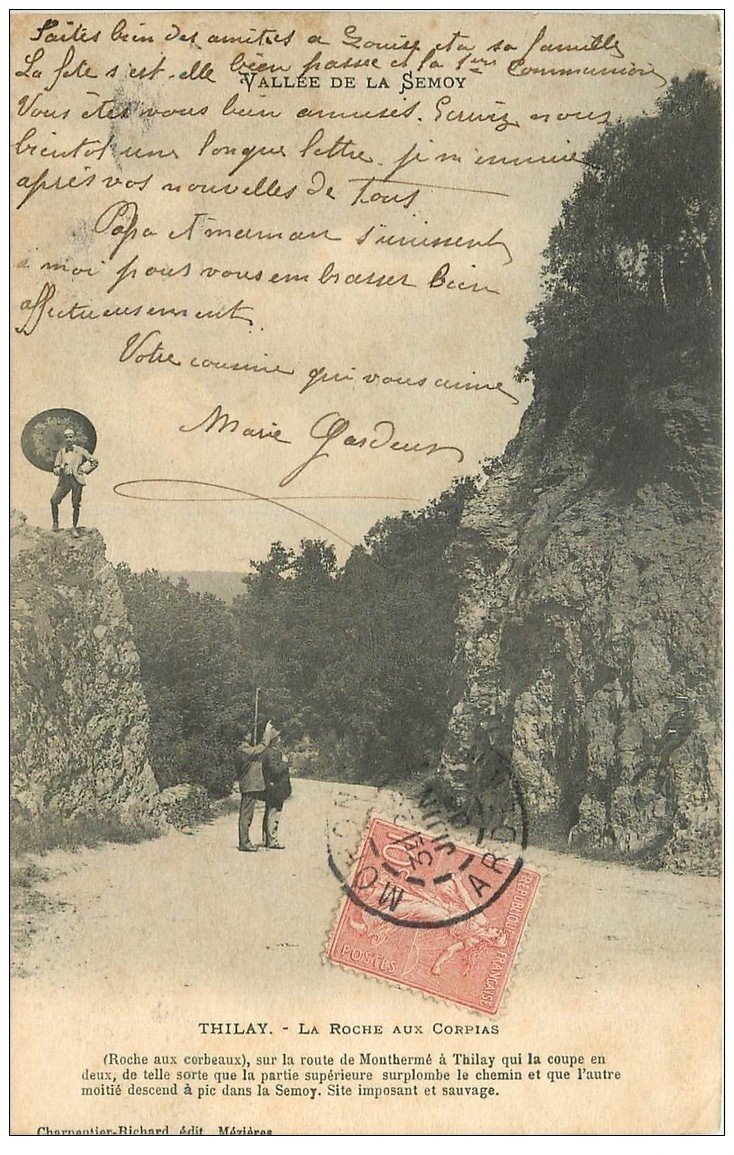 Faites bien des amitiés a Louise et a sa famille
La fete s'est-elle bien passée et la 1ère Communion
VALLÉE DE LA SEMOY
Vous êtes vous bien amusés. Ecrivez nous
bientot une longue lettre. je m'ennuie
après vos nouvelles de Tous
Papa et maman s'unissent
à moi pour vous embrasser bien
affectueusement.
Votre cousine qui vous aime
Marie
10
POSTES
RÉPUBLIQUE FRANÇAISE
JUIN
ARD
THILAY. - LA ROCHE AUX CORPIAS
(Roche aux corbeaux), sur la route de Monthermé à Thilay qui la coupe en
deux, de telle sorte que la partie supérieure surplombe le chemin et que l'autre
moitié descend à pic dans la Semoy. Site imposant et sauvage.
Charpentier-Richard édit. Mézières